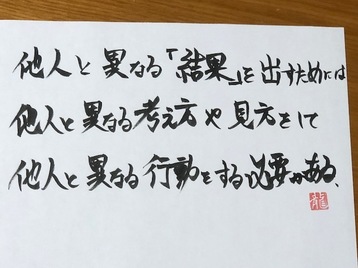 他人と異なる「結果」を出すためには
他人と異なる考え方や見方をして
他人と異なる行動をする必要がある、
龍